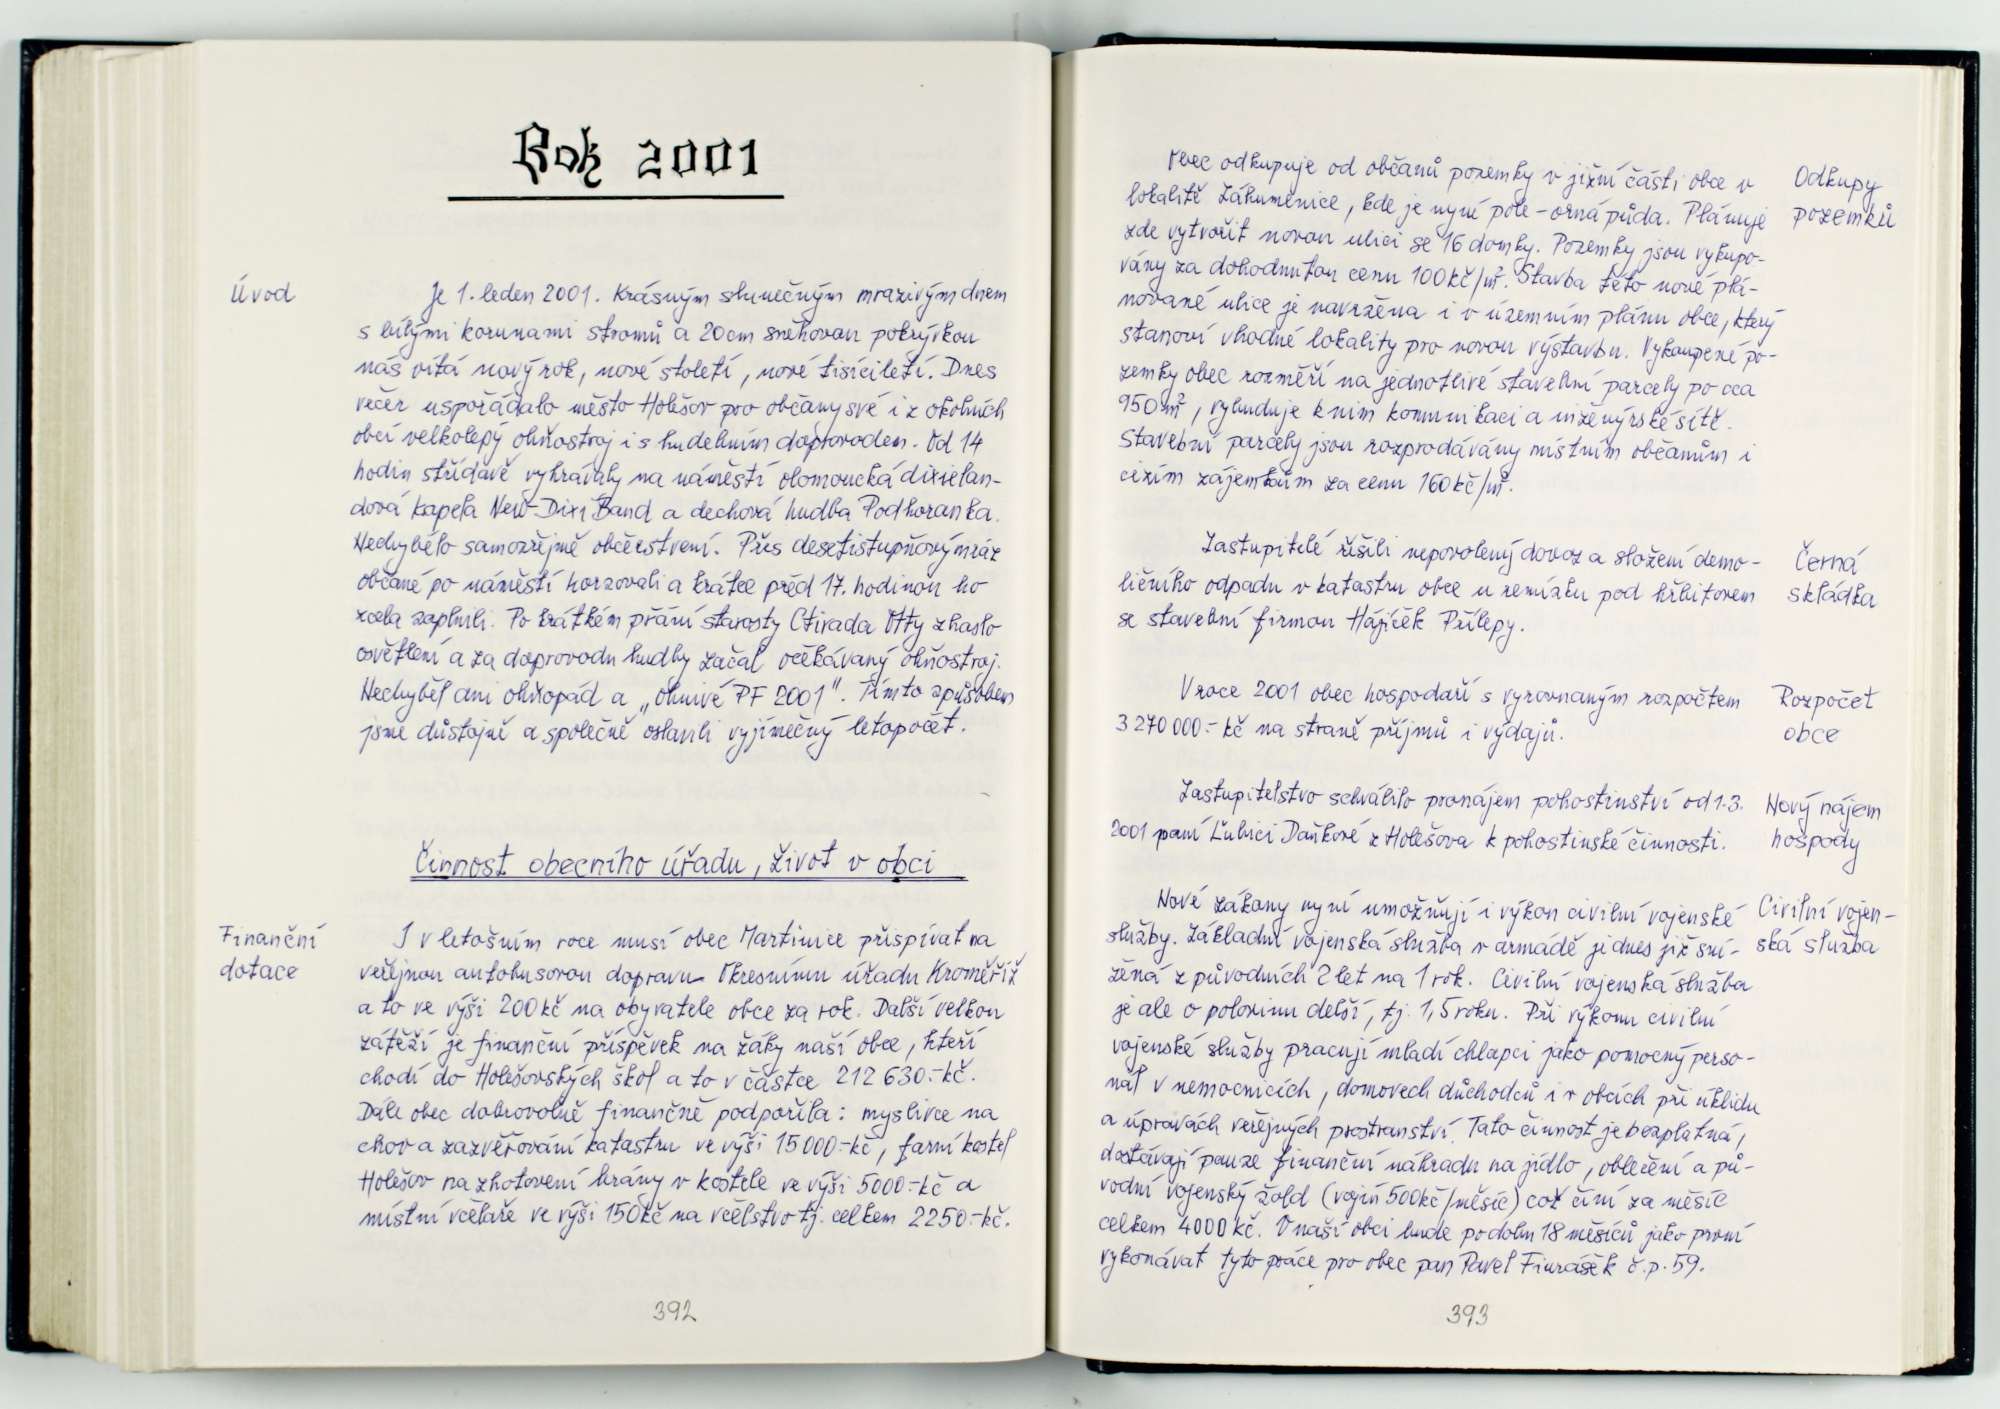 Rok 2001
Úvod
Je 1. leden 2001. Krásným slunečným mrazivým dnem
s bílými korunami stromů a 20cm sněhovou pokrývkou
nás vítá nový rok, nové století, nové tisíciletí. Dnes
večer uspořádalo město Holešov pro občany své i z okolních
obcí velkolepý ohňostroj i s hudebním doprovodem. Od 14
hodin střídavě vyhrávaly na náměstí olomoucká dixielan-
dová kapela New-Dixi Band a dechová hudba Podhoranka.
Nechybělo samozřejmě občerstvení. Přes desetistupňový mráz
občané po náměstí korzovali a krátce před 17. hodinou ho
zcela zaplnili. Po krátkém přání starosty Ctirada Otty zhaslo
osvětlení a za doprovodu hudby začal očekávaný ohňostroj.
Nechyběl ani ohňopád a „ohnivé PF 2001". Tímto způsobem
jsme důstojně a společně oslavili vyjímečný letopočet.
Činnost obecního úřadu, život v obci
Finanční
dotace
I v letošním roce musí obec Martinice přispívat na
veřejnou autobusovou dopravu Okresnímu úřadu Kroměříž
a to ve výši 200kč na obyvatele obce za rok. Další velkou
zátěží je finanční příspěvek na žáky naší obce, kteří
chodí do Holešovských škol a to v částce 212 630.-kč.
Dále obec dobrovolně finančně podpořila: myslivce na
chov a zazvěřování katastru ve výši 15000.-kč, farní kostel
Holešov na zhotovení brány v kostele ve výši 5000.-kč a
místní včelaře ve výši 150kč na včelstvo tj. celkem 2250.-kč.
392
Obec odkupuje od občanů pozemky v jižní části obce v
lokalitě Záhumenice, kde je nyní pole - orná půda. Plánuje
zde vytvořit novou ulici se 16 domky. Pozemky jsou vykupo-
vány za dohodnutou cenu 100kč/m². Stavba této nové plá-
nované ulice je navržena i v územním plánu obce, který
stanoví vhodné lokality pro novou výstavbu. Vykoupené po-
zemky obec rozměří na jednotlivé stavební parcely po cca
950m², vybuduje k nim komunikaci a inženýrské sítě.
Stavební parcely jsou rozprodávány místním občanům i
cizím zájemcům za cenu 160kč/m².
Odkupy
pozemků
Zastupitelé řešili nepovolený dovoz a složení demo-
ličního odpadu v katastru obce u remízku pod hřbitovem
se stavební firmou Hájíček Přílepy.
Černá
skládka
V roce 2001 obec hospodaří s vyrovnaným rozpočtem
3 270 000.- kč na straně příjmů i výdajů.
Rozpočet
obce
Zastupitelstvo schválilo pronájem pohostinství od 1.3.
2001 paní Ľubici Daňkové z Holešova k pohostinské činnosti.
Nový nájem
hospody
Nové zákony nyní umožňují i výkon civilní vojenské
služby. Základní vojenská služba v armádě je dnes již sní-
žená z původních 2 let na 1 rok. Civilní vojenská služba
je ale o polovinu delší, tj. 1,5 roku. Při výkonu civilní
vojenské služby pracují mladí chlapci jako pomocný perso-
nál v nemocnicích, domovech důchodců i v obcích při úklidu
a úpravách veřejných prostranství. Tato činnost je bezplatná,
dostávají pouze finanční náhradu na jídlo, oblečení a pů-
vodní vojenský žold (vojín 500kč/měsíc) což činí za měsíc
celkem 4000kč. V naší obci bude po dobu 18 měsíců jako první
vykonávat tyto práce pro obec pan Pavel Fiurášek č.p. 59.
Civilní vojen-
ská služba
393